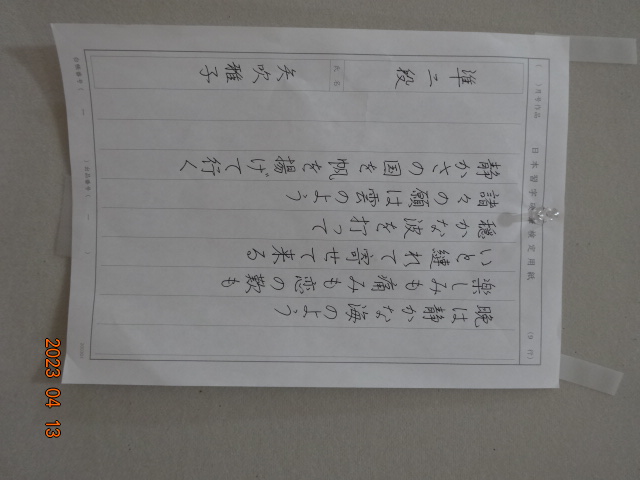 日本習字 検定用紙
月
作品
晩は静かな海のよう
楽しみも痛みも恋の歎も
いと縺れて寄せて来る
穏かな波を打って
諸々の願は雲のよう
静かさの国を帆を揚げて行く
準二段
氏名
矢吹雅子
2023 04 13